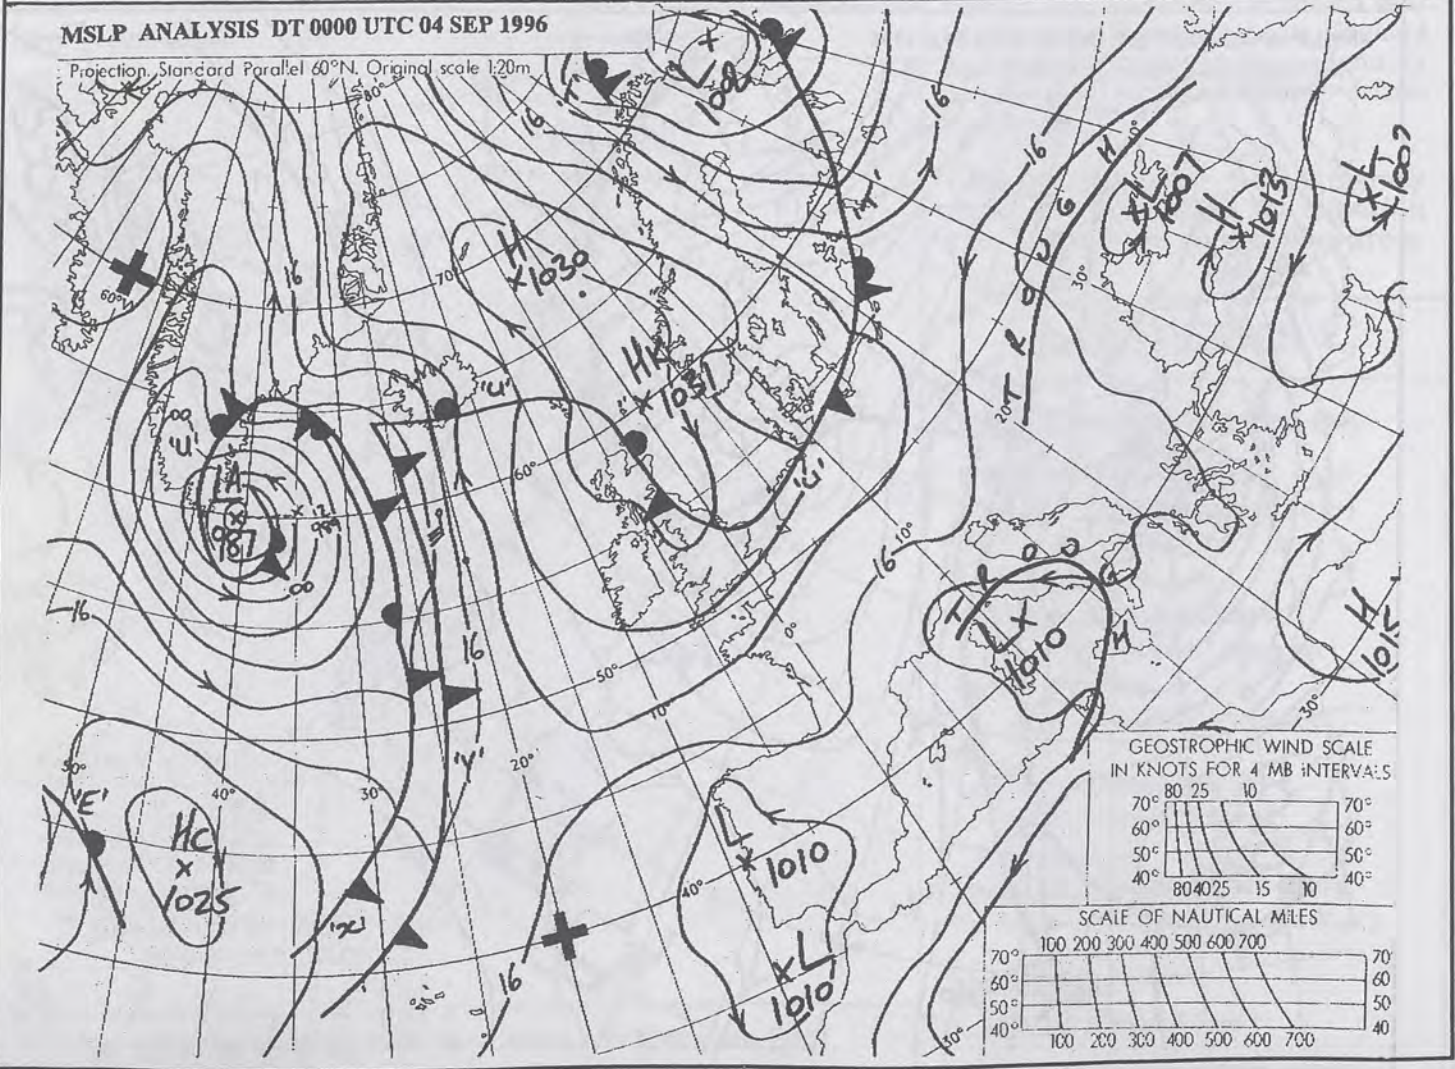 MSLP ANALYSIS DT 0000 UTC 04 SEP 1996
Projection, Standard Parallel 60°N. Original scale 1:20m
80°
'T'
16
L
16
16
16
H
1030
70°
60°N
16
'T'
TROUGH
L
1007
H
1013
L
30°
20°
HK
1031
'U'
00
'U'
LA
987
00
60°
'G'
10°
16
16
16
50°
10°
0°
TROUGH
L
1010
H
1015
30°
50°
'E'
40°
30
20°
'Y'
HC
1025
'X'
16
L
1010
40°
L
1010
30°
GEOSTROPHIC WIND SCALE
IN KNOTS FOR 4 MB INTERVALS
80 25 10
70° 70°
60° 60°
50° 50°
40° 40°
80 40 25 15 10
SCALE OF NAUTICAL MILES
100 200 300 400 500 600 700
70° 70
60° 60
50° 50
40° 40
100 200 300 400 500 600 700